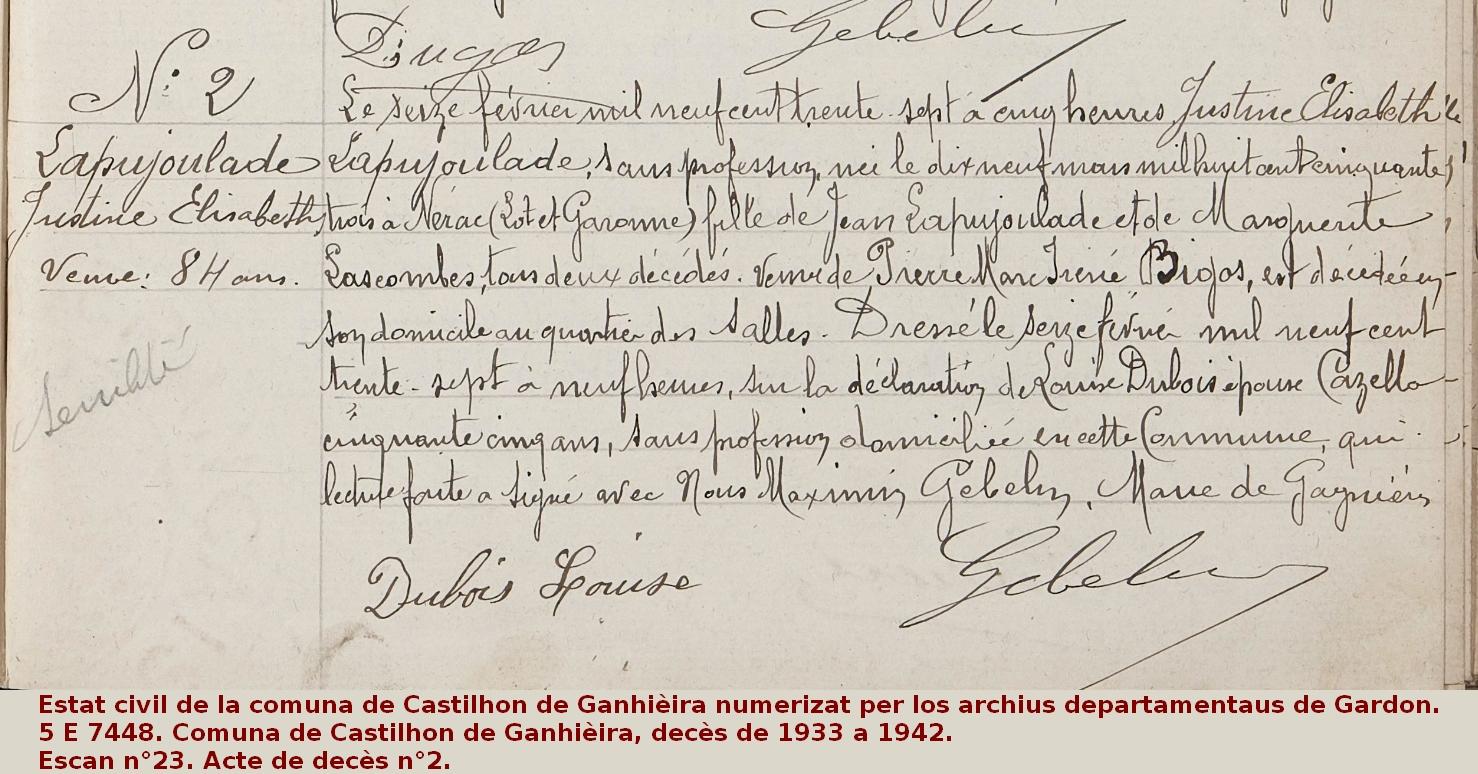 Dugas Gebelin
N° 2
Lapujoulade
Justine Elisabeth
Veuve: 84 ans.
Senilité
Le seize février mil neuf cent trente-sept à cinq heures Justine Elisabeth
Lapujoulade, sans profession, née le dix neuf mars mil huit cent cinquante
trois à Nérac (Lot et Garonne) fille de Jean Lapujoulade et de Marguerite
Lascombes, tous deux décédés. Veuve de Pierre Marc Irené Bigos, est décédée en
son domicile au quartier des Salles. Dressé le seize février mil neuf cent
trente-sept à neuf heures, sur la déclaration de Louise Dubois épouse Cazello
cinquante cinq ans, sans profession domiciliée en cette Commune, qui
lecture faite a signé avec Nous Maximin Gebelin, Maire de Gagnières
Dubois Louise Gebelin
Estat civil de la comuna de Castilhon de Ganhièira numerizat per los archius departamentaus de Gardon.
5 E 7448. Comuna de Castilhon de Ganhièira, decès de 1933 a 1942.
Escan n°23. Acte de decès n°2.